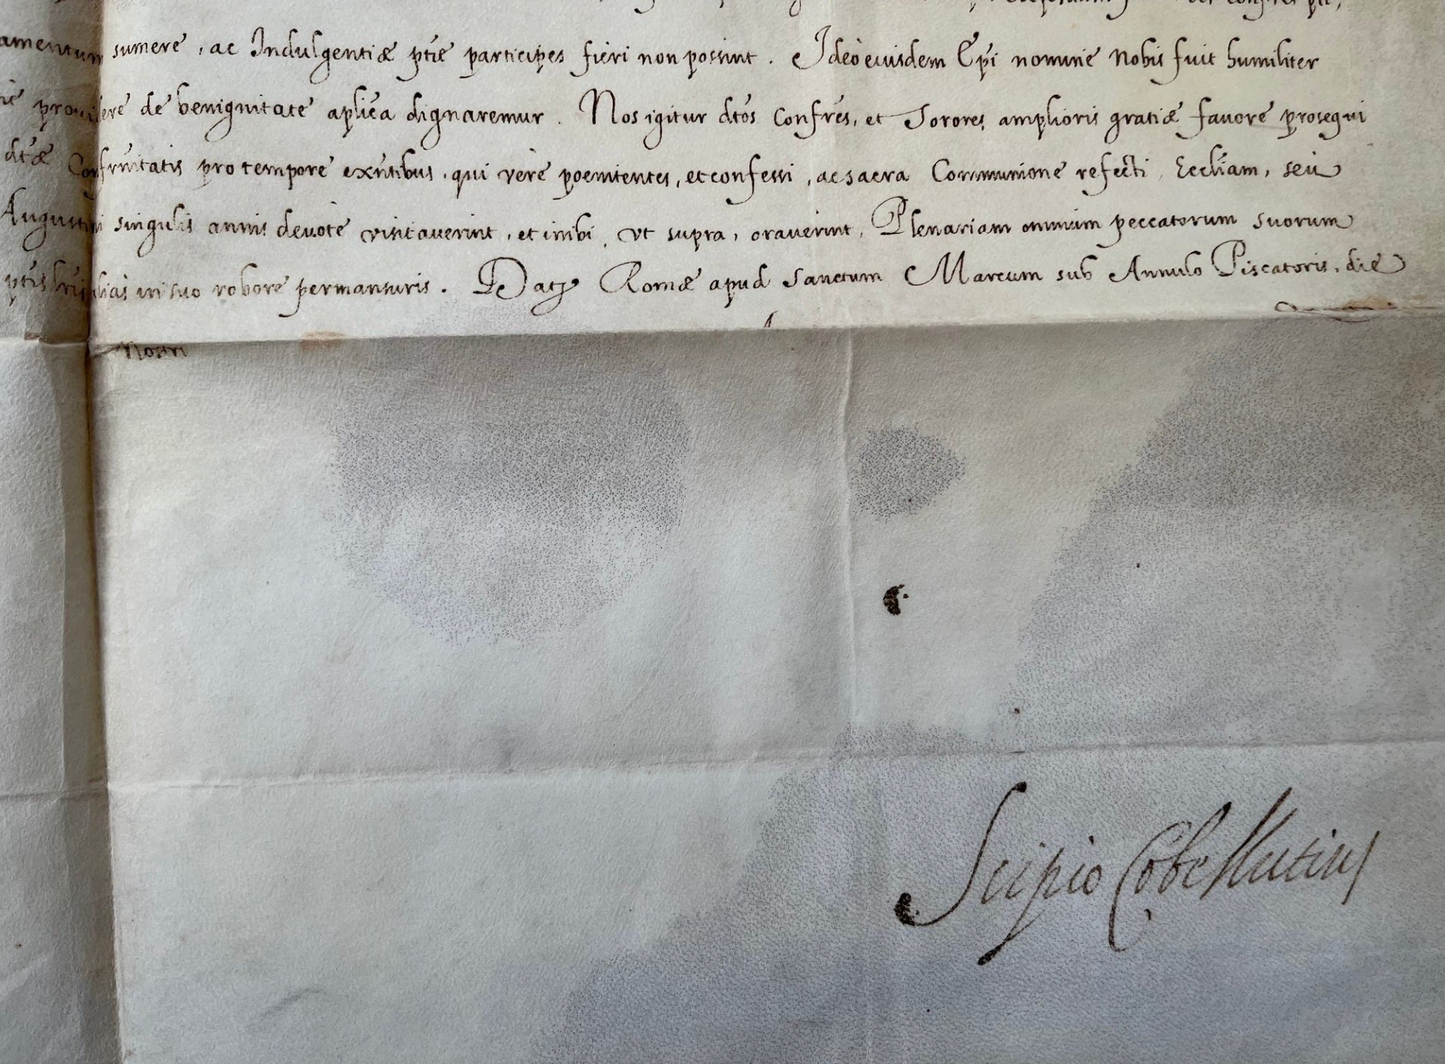 amentum sumere, ac Indulgentiæ ptæ participes fieri non possint. Ideo eiusdem Epi nomine nobis fuit humiliter
providere de benignitate aplica dignaremur. Nos igitur dtos Confres, et Sorores amplioris gratiæ favore prosequi
dtæ Confrnitatis pro tempore exntibus, qui vere poenitentes, et confessi, ac sacra Communione refecti Eccliam, seu
Augustini singulis annis devote visitaverint, et inibi, ut supra, oraverint, Plenariam omnium peccatorum suorum
ptis in suo robore permansuris. Dat Romæ apud Sanctum Marcum sub Annulo Piscatoris, die
Nostri
Scipio Cobellutius